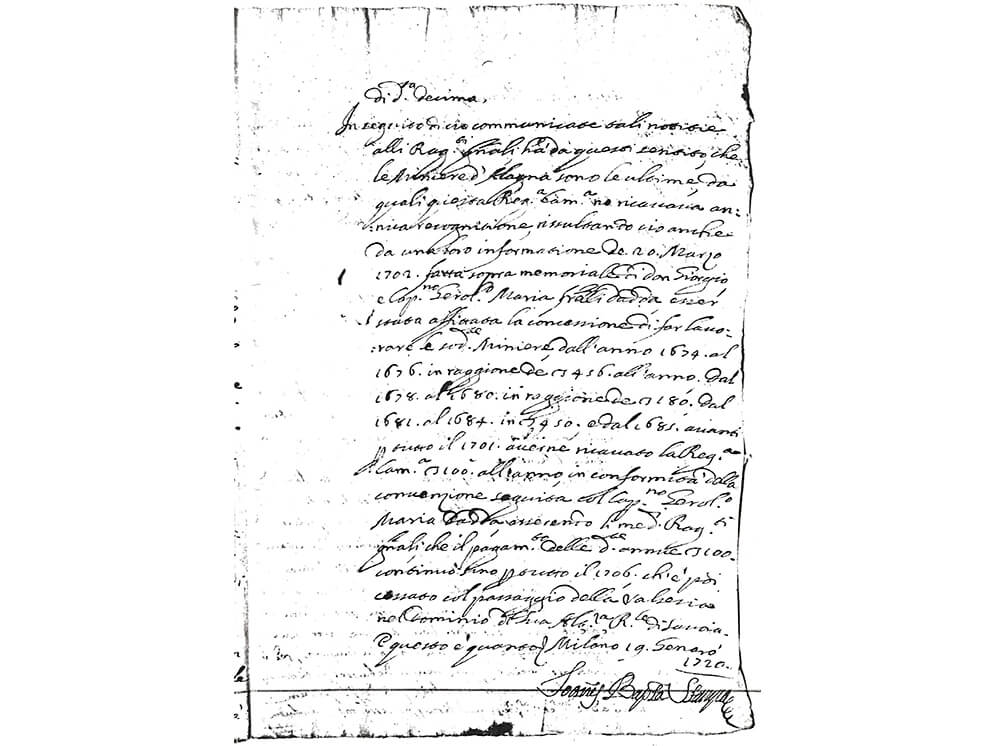 di d.ª decima.
In seguito di ciò communicate tali notitie
alli Rag.ti gñali hò da questi sentito, che
le Miniere d'Alagna sono le ultime, da
quali questa Reg.ª Cam.ª ne ricavava an:
:nua recognitione, risultando ciò anche
da una loro informatione de 20. Marzo
1702. fatta sopra memoriale di don Giorgio
e Cap.no Gerol.º Maria frãlli d'Adda esser
stata affittata la concessione di far lavo:
:rare le sod.e Miniere, dall'anno 1674. al
1676. in raggione de 456. all'anno. Dal
1678. al 1680. in raggione de 180. dal
1681. al 1684. in 450. e dal 1685. avanti
p tutto il 1701. averne ricavato la Reg.ª
Cam.ª 100. all'anno, in conformità della
convenzione seguita col Cap.no Gerol.º
Maria d'Adda li med.i Rag.ti
gñali, che il pagam.to delle d.e annue 100.
continuò sino p tutto il 1706. ch'è poi
cessato col passaggio della Valsesia
nel Dominio di Sua Alt.za R.le di Savoia.
E questo è quanto Milano 19. Genaro
1720.
Joañes Bapta